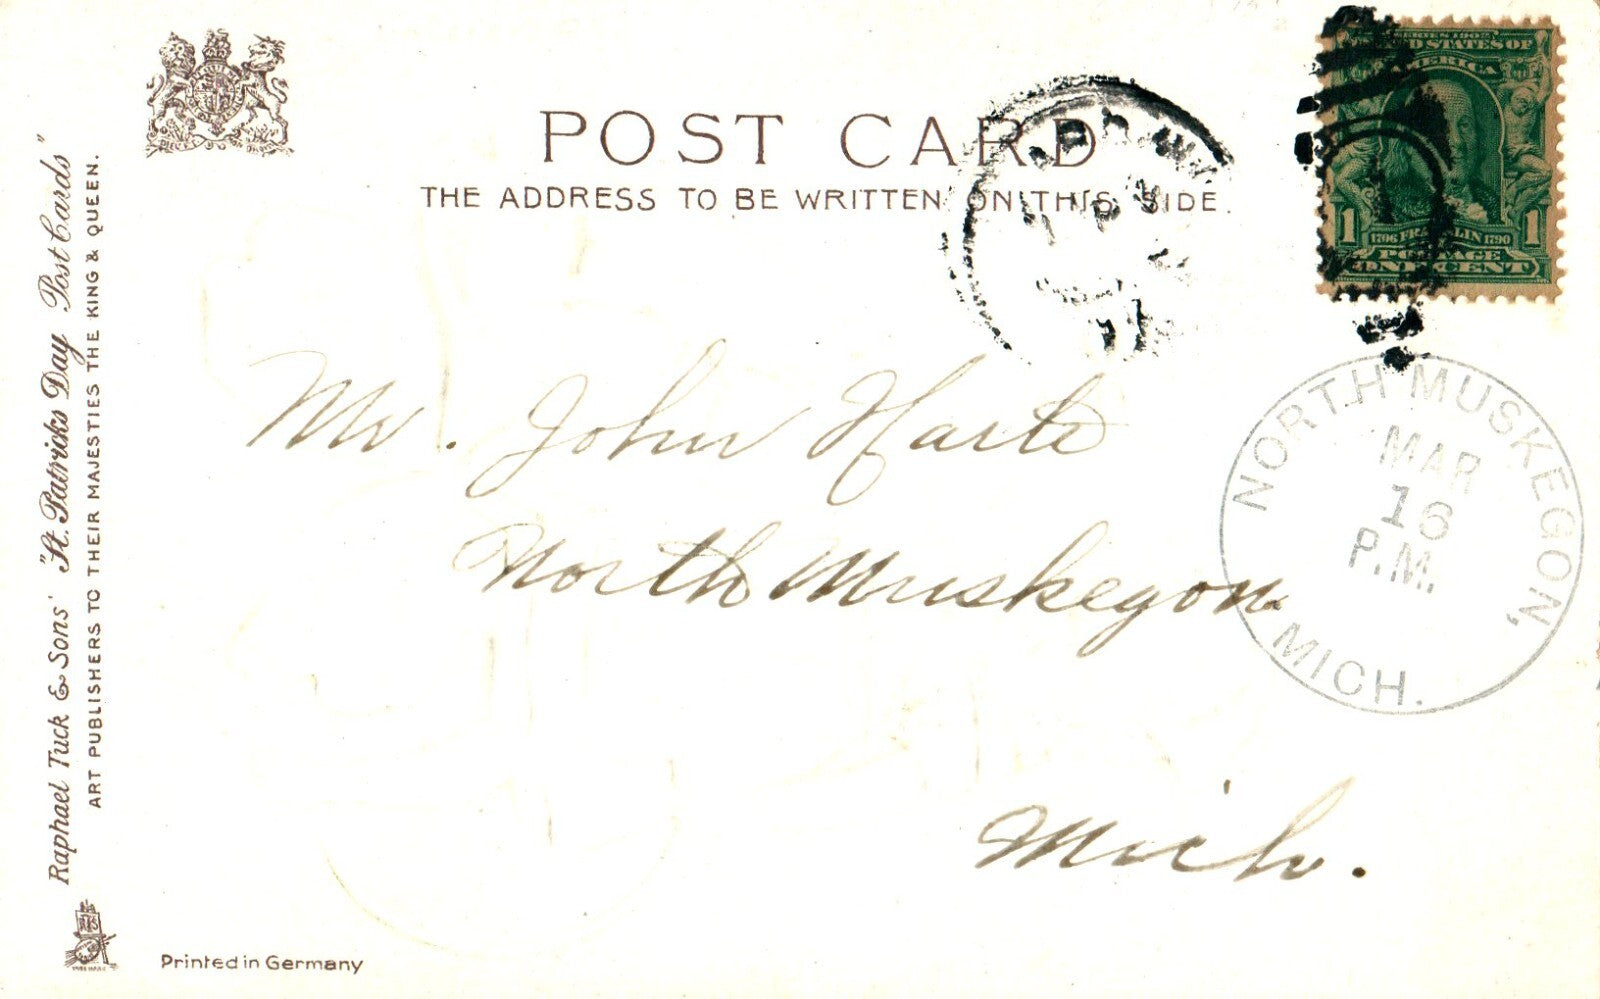 POST CARD
THE ADDRESS TO BE WRITTEN ON THIS SIDE.
SERIES 1902
UNITED STATES OF
AMERICA
1 1706 FRANKLIN 1790 1
POSTAGE
ONE CENT
Mr. John Harte
North Muskegon
Mich.
NORTH MUSKEGON, MICH.
MAR
16
P.M.
Raphael Tuck & Sons' "St. Patricks Day Post Cards"
ART PUBLISHERS TO THEIR MAJESTIES THE KING & QUEEN.
Printed in Germany